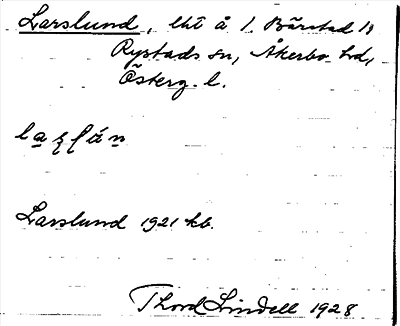 Larslund, lht å 1 Bärstad 13
Rystads sn, Åkerbo hd,
Österg. l.
Larslund 1921 kb.
Thord Lindell 1928